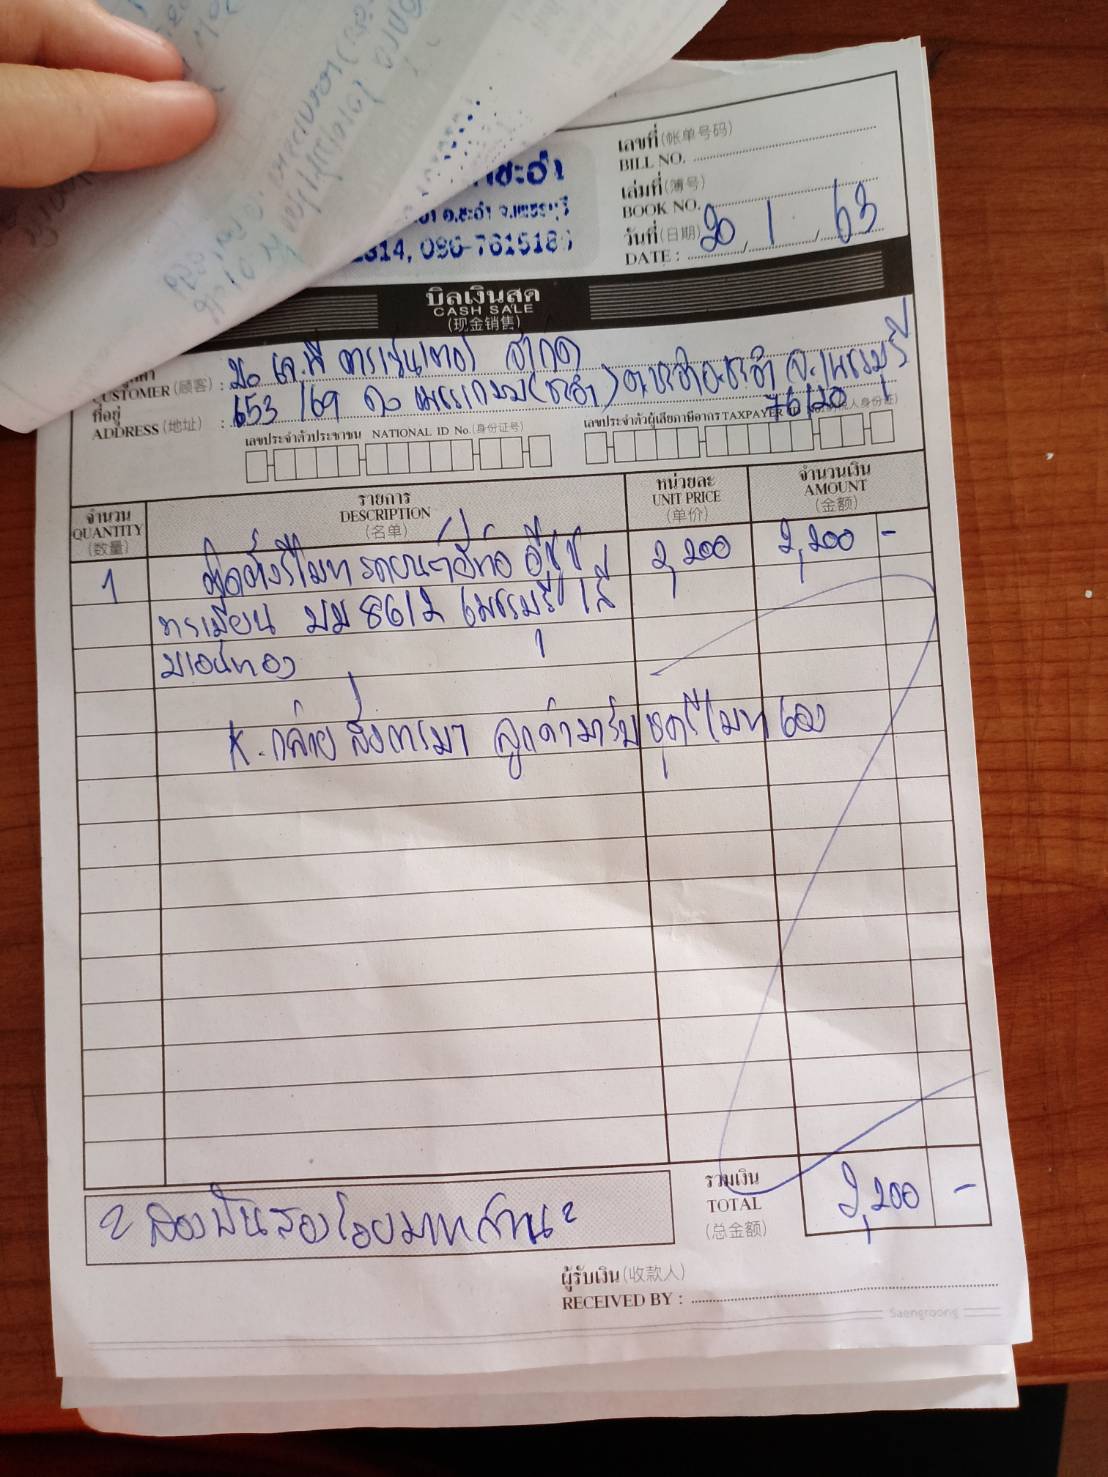 เลขที่ (帐单号码)
BILL NO.
เล่มที่ (簿号)
BOOK NO.
วันที่ (日期) 20 / 1 / 63
DATE :
ชะอำ
อ.ชะอำ จ.เพชรบุรี
2314, 090-761518
บิลเงินสด
CASH SALE
(现金销售)
CUSTOMER (顾客) : เค.พี จำกัด
ที่อยู่
ADDRESS (地址) : 653/69 ถ. เพชรเกษม (ชะอำ) ต.ชะอำ อ.ชะอำ จ.เพชรบุรี
76120
เลขประจำตัวประชาชน NATIONAL ID No. (身份证号)
เลขประจำตัวผู้เสียภาษีอากร TAXPAYER
จำนวน
QUANTITY
(数量)
รายการ
DESCRIPTION
(名单)
หน่วยละ
UNIT PRICE
(单价)
จำนวนเงิน
AMOUNT
(金额)
1 ติดตั้งรีโมท รถยนต์ยี่ห้อ อีซูซุ 2,200 2,200 -
ทะเบียน บม 8612 เพชรบุรี 1 สี
บรอนซ์ทอง
K. กล้วย ลูกค้ามารับชุดรีโมทเอง
รวมเงิน
TOTAL
(总金额)
2,200 -
= สองพันสองร้อยบาทถ้วน =
ผู้รับเงิน (收款人)
RECEIVED BY :
Saengroong